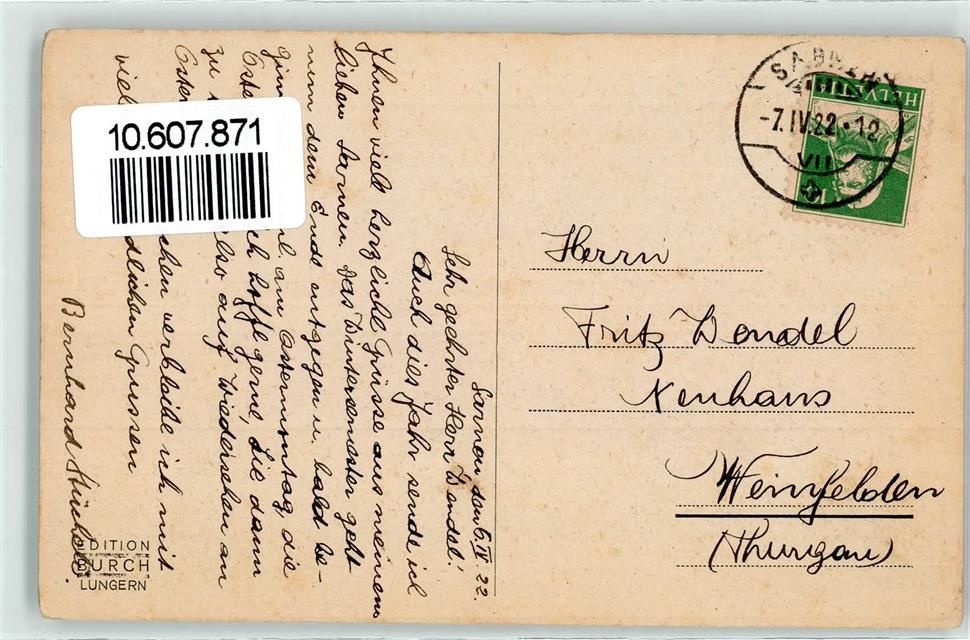 Sarnen den 6. IV 22.
Sehr geehrter Herr Dondel!
Auch dies Jahr sende ich
Ihnen viele herzliche Grüsse aus meinem
lieben Sarnen. Das Wintersemester geht
nun dem Ende entgegen u. bald be-
am Ostermontag die
ich hoffe gerne, Sie dann
zu
also auf Wiedersehen an
verbleibe ich mit
viel
dlichen Grüssen
Bernhard
EDITION
BURCH
LUNGERN
10.607.871
SARNEN
-7.IV.22-12
VII
HELVETIA
10
Herrn
Fritz Dondel
Neuhaus
Weinfelden
(Thurgau)